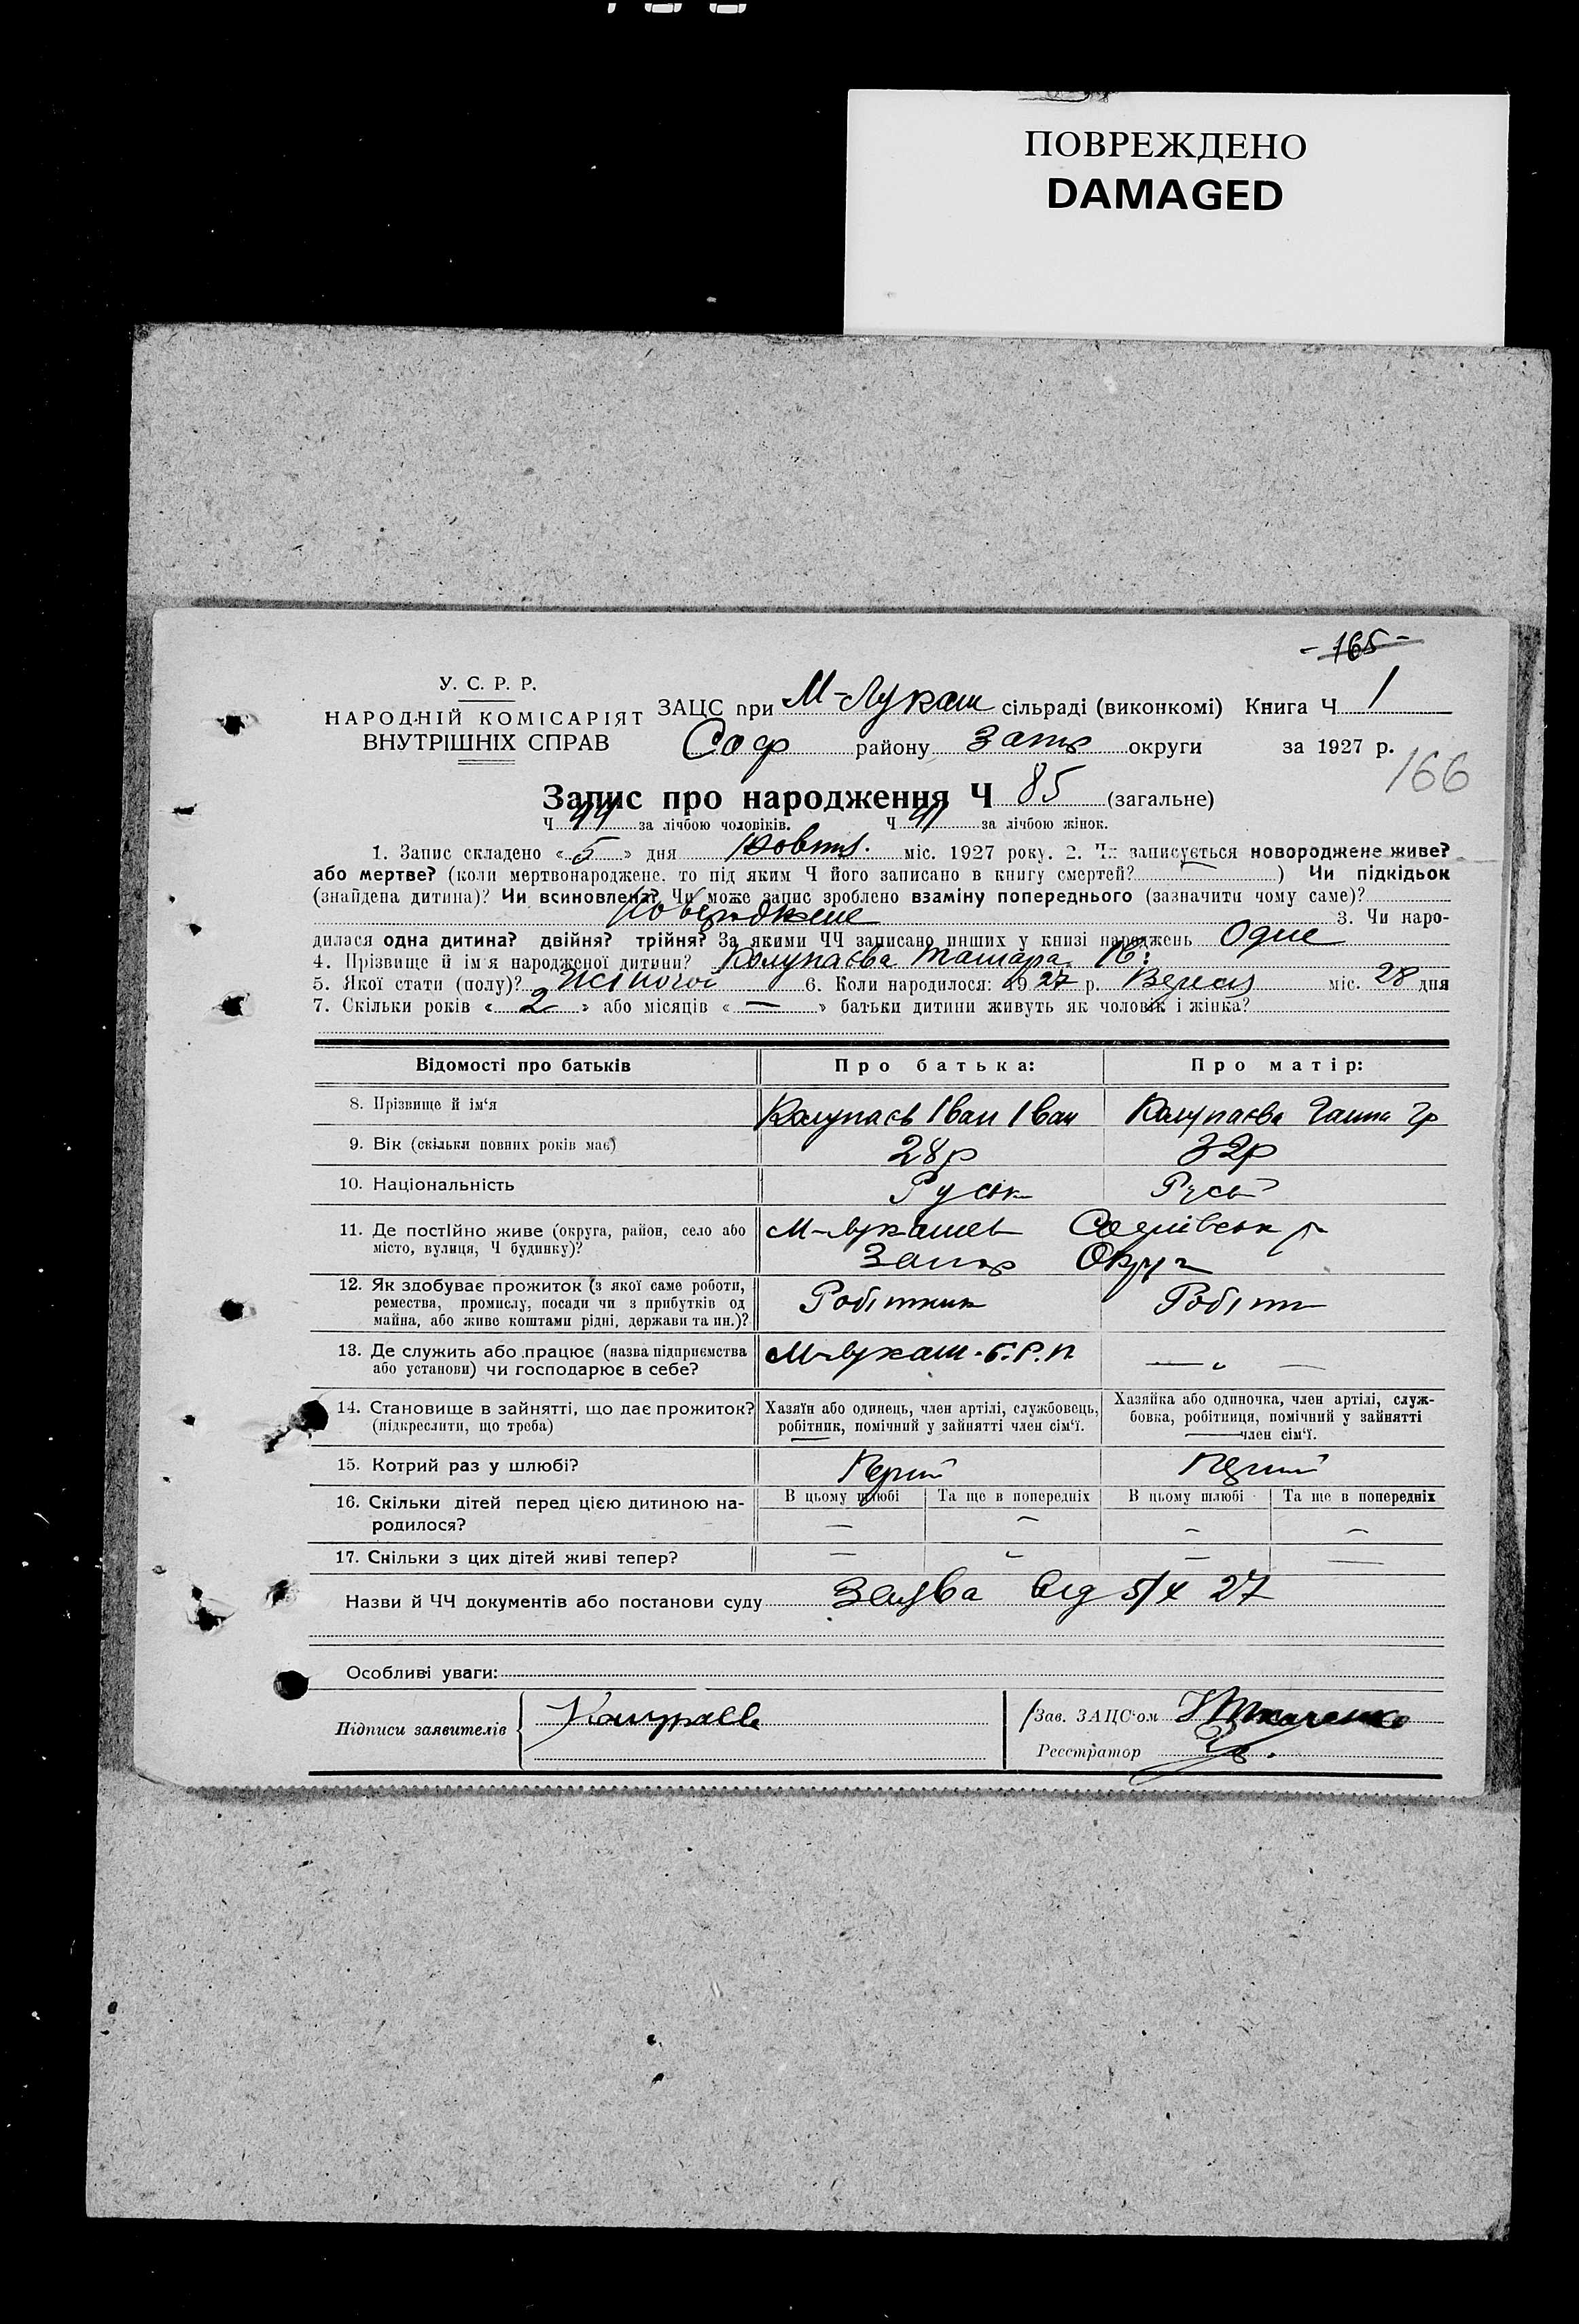 ПОВРЕЖДЕНО
DAMAGED
- 165 -
У. С. Р. Р.
НАРОДНІЙ КОМІСАРІЯТ
ВНУТРІШНІХ СПРАВ
ЗАЦС при М-Лукаш сільраді (виконкомі) Книга Ч 1
Соф району Запор округи за 1927 р.
166
Запис про народження Ч 85 (загальне)
Ч 44 за лічбою чоловіків. Ч 41 за лічбою жінок.
1. Запис складено « 5 » дня Жовтн. міс. 1927 року. 2. Чи записується новороджене живе?
або мертве? (коли мертвонароджене, то під яким Ч його записано в книгу смертей? — ) Чи підкідьок
(знайдена дитина)? Чи всиновлена? Чи може запис зроблено взаміну попереднього (зазначити чому саме)?
Новороджене 3. Чи наро-
дилася одна дитина? двійня? трійня? За якими ЧЧ записано инших у книзі народжень Одне
4. Прізвище й ім'я народженої дитини? Колупаєва Тамара Ів:
5. Якої стати (полу)? Жіночої 6. Коли народилося: 1927 р. Вересн міс. 28 дня
7. Скільки років « 2 » або місяців « — » батьки дитини живуть як чоловік і жінка?
Відомості про батьків Про батька: Про матір:
8. Прізвище й ім'я Колупаєв Іван Іван Колупаєва Ганна Гр
9. Вік (скільки повних років має) 28 р 32 р
10. Національність Руськ Руськ
11. Де постійно живе (округа, район, село або
місто, вулиця, Ч будинку)?
М-Лукашев Софіївськ р
Запор Округ
12. Як здобуває прожиток (з якої саме роботи,
ремества, промислу, посади чи з прибутків од
майна, або живе коштами рідні, держави та ин.)?
Робітник Робітн
13. Де служить або працює (назва підприємства
або установи) чи господарює в себе?
М-Лукаш. Б.Р.П. — „ —
14. Становище в зайнятті, що дає прожиток?
(підкреслити, що треба)
Хазяїн або одинець, член артілі, службовець,
робітник, помічний у зайнятті член сім'ї.
Хазяйка або одиночка, член артілі, служ-
бовка, робітниця, помічний у зайнятті
член сім'ї.
15. Котрий раз у шлюбі? Перший Перший
16. Скільки дітей перед цією дитиною на-
родилося?
В цьому шлюбі Та ще в попередніх В цьому шлюбі Та ще в попередніх
— — — —
17. Скільки з цих дітей живі тепер? — — — —
Назви й ЧЧ документів або постанови суду Заява від 5/X 27
Особливі уваги:
Підписи заявителів Колупаев
Зав. ЗАЦС'ом Ткаченко
Реєстратор